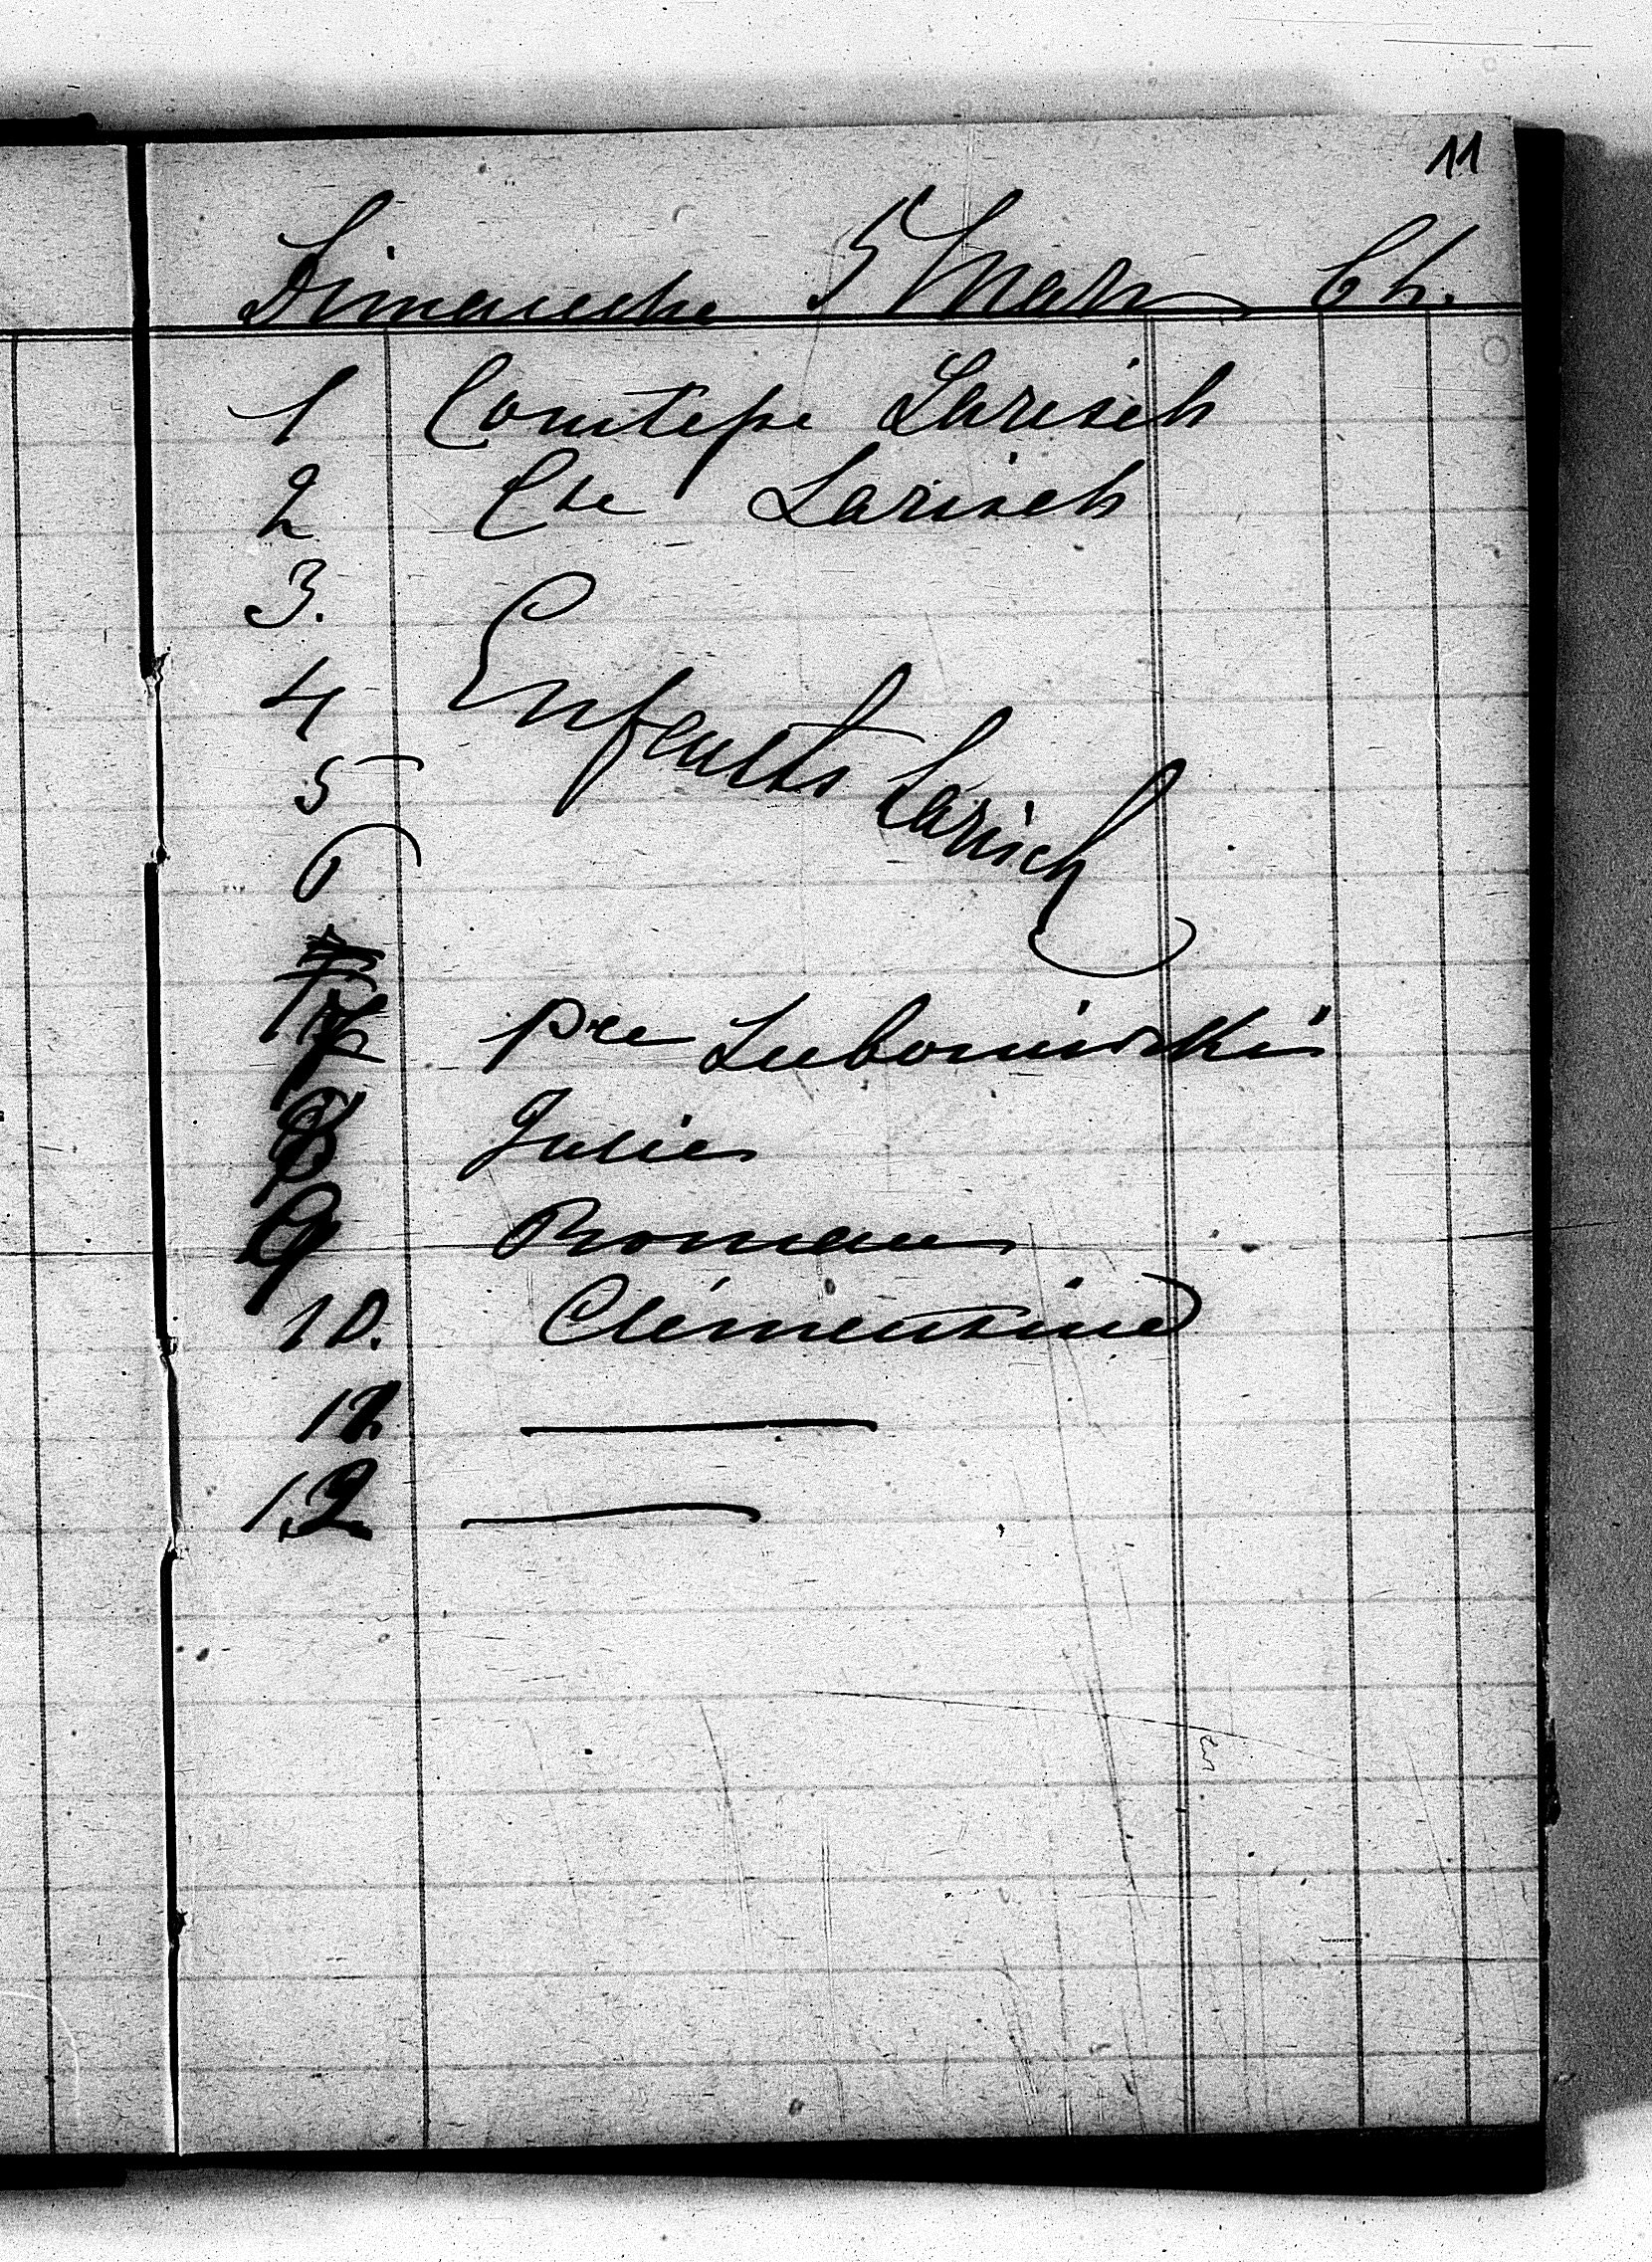 11
Dimanche 5 Mars Ch.
1 Comtesse Larisch
2 Cte Larisch
3.
4 Enfants Larisch
5
6
7 Pce Lubomirski
8 Julie
9 Roman
10. Clémentine
11. —
12 —